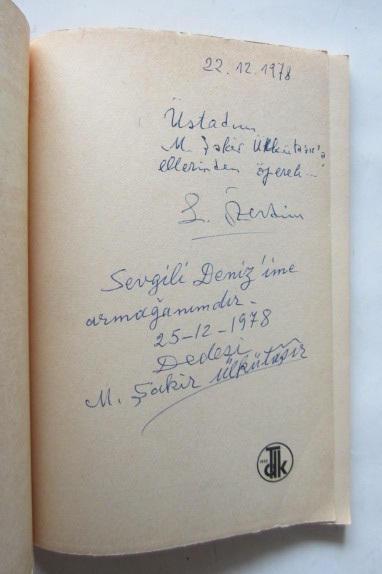 22.12.1978
Üstadım
M. Şakir Ülkütaşır'a
ellerinden öperek...
S. Özerdim
Sevgili Deniz'ime
armağanımdır.
25-12-1978
Dedesi
M. Şakir Ülkütaşır
TDK